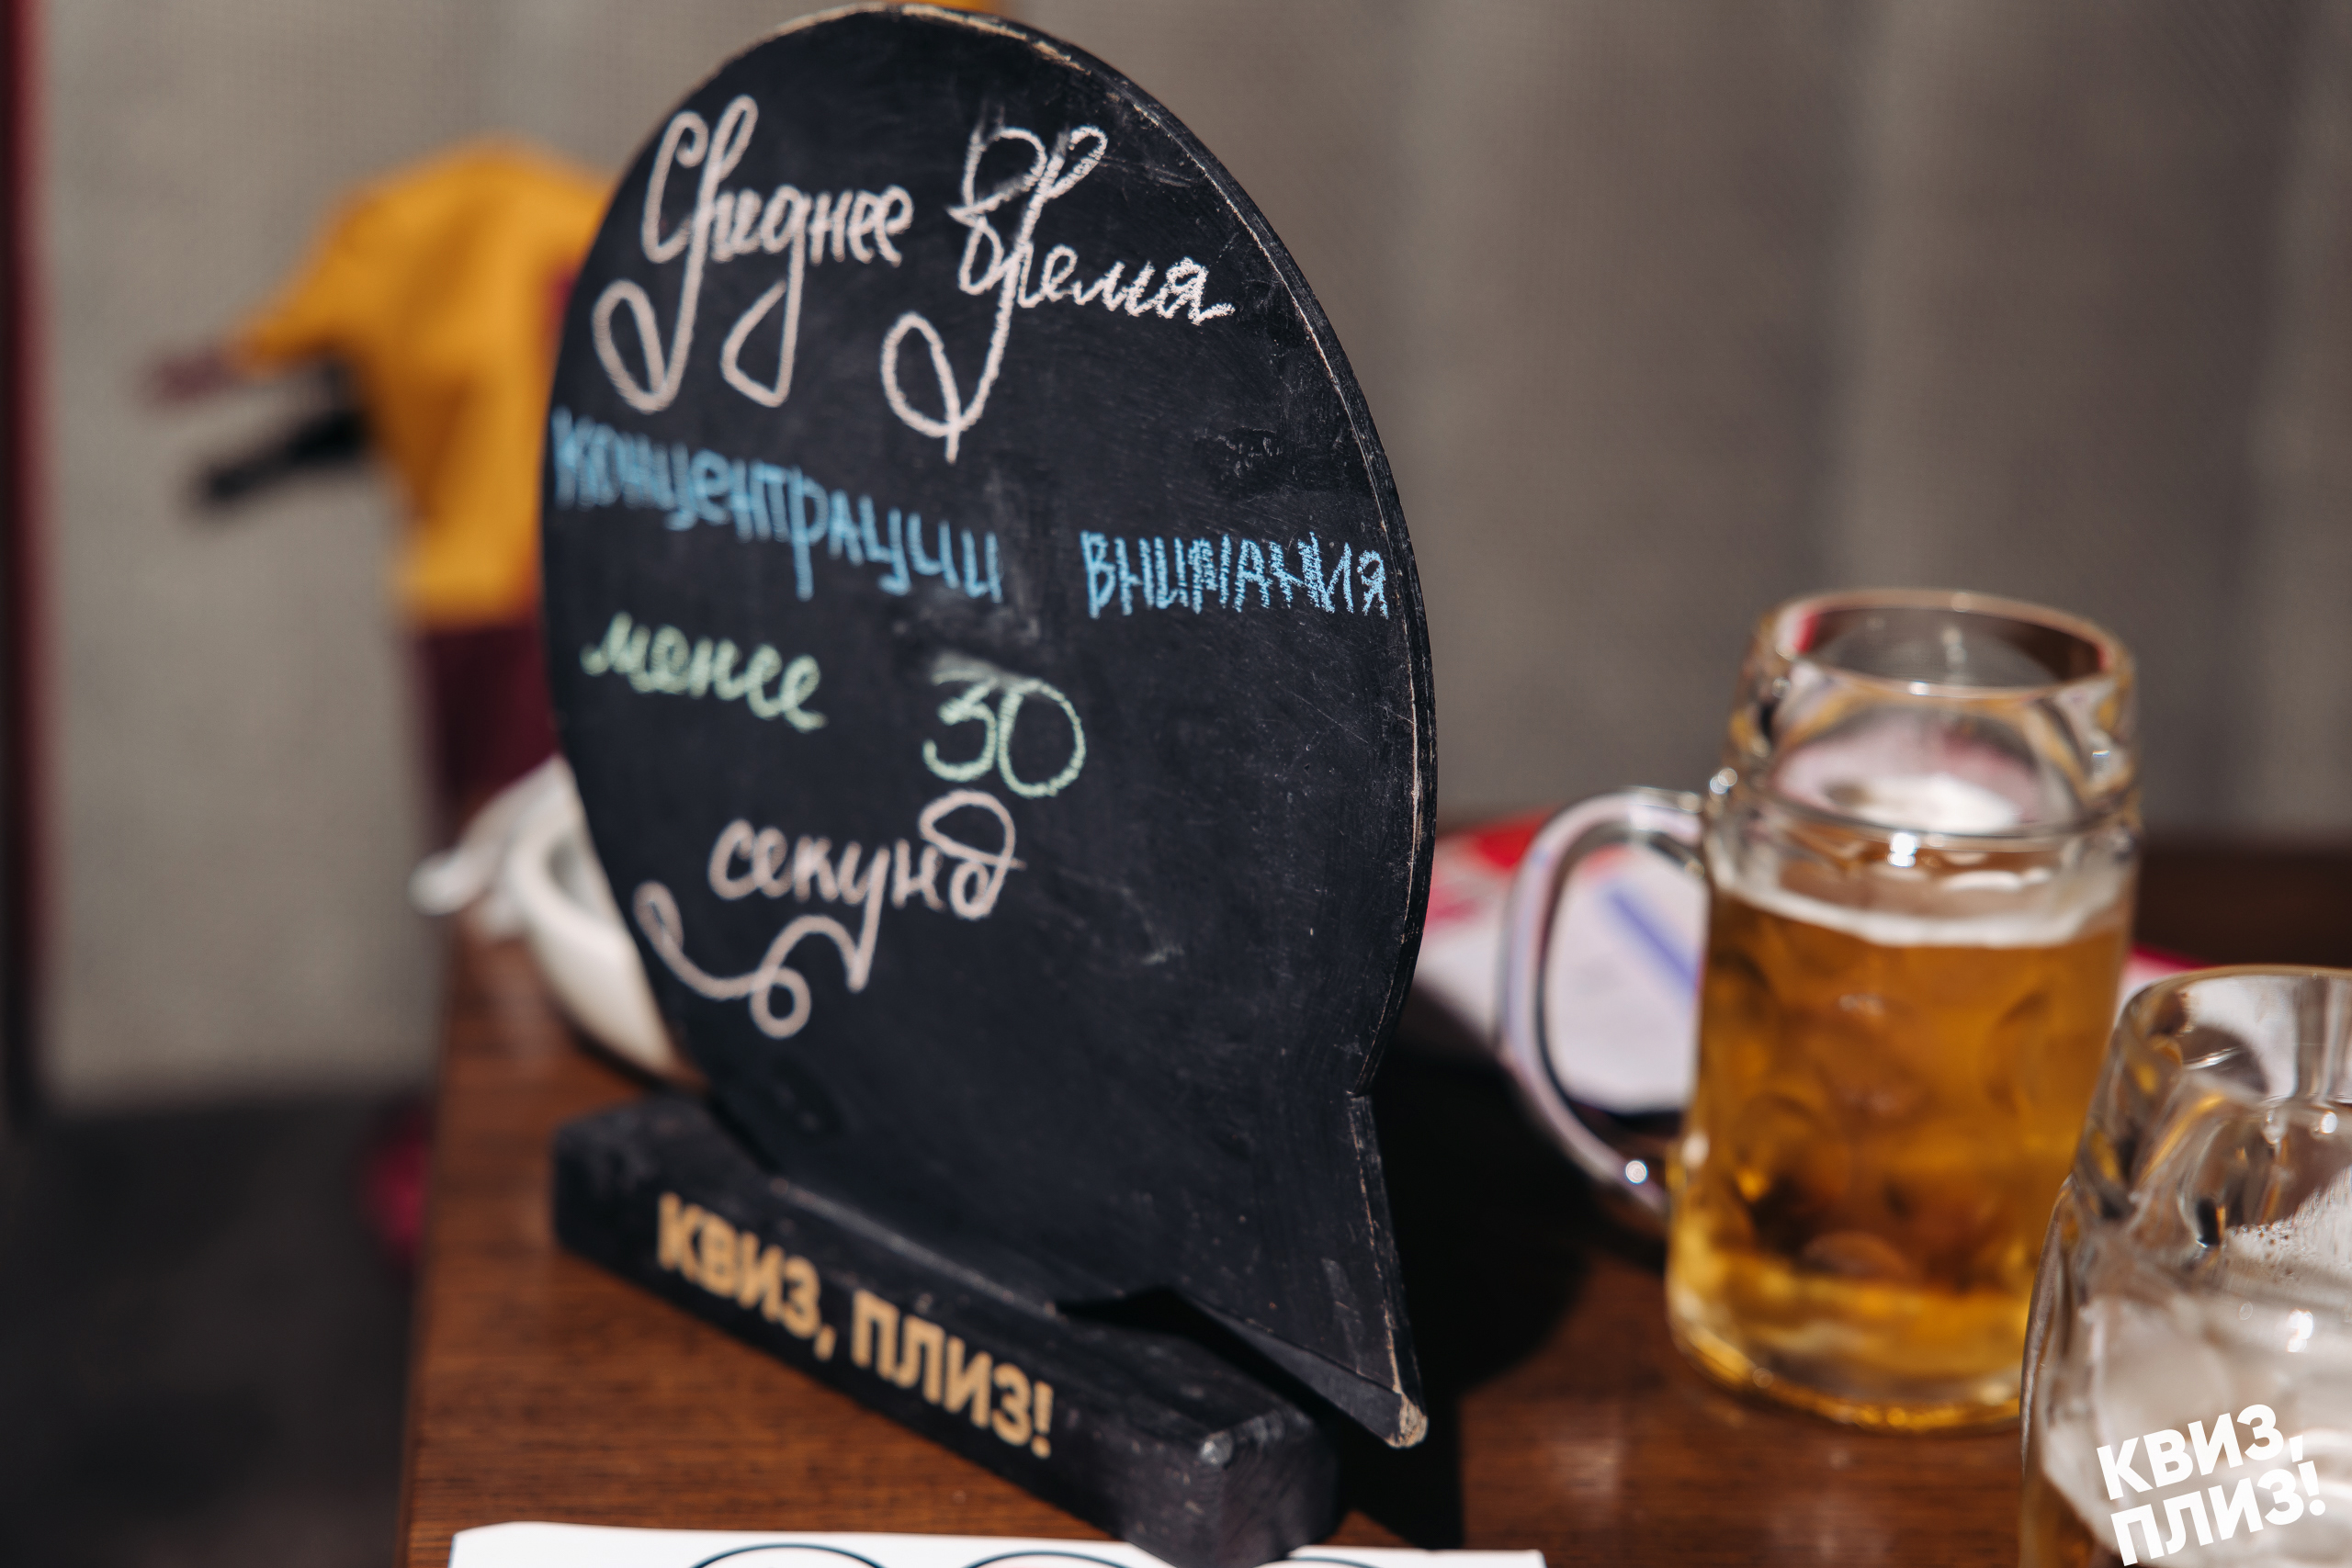 Среднее Время
концентрации внимания
менее 30
секунд
КВИЗ, ПЛИЗ!
КВИЗ,
ПЛИЗ!